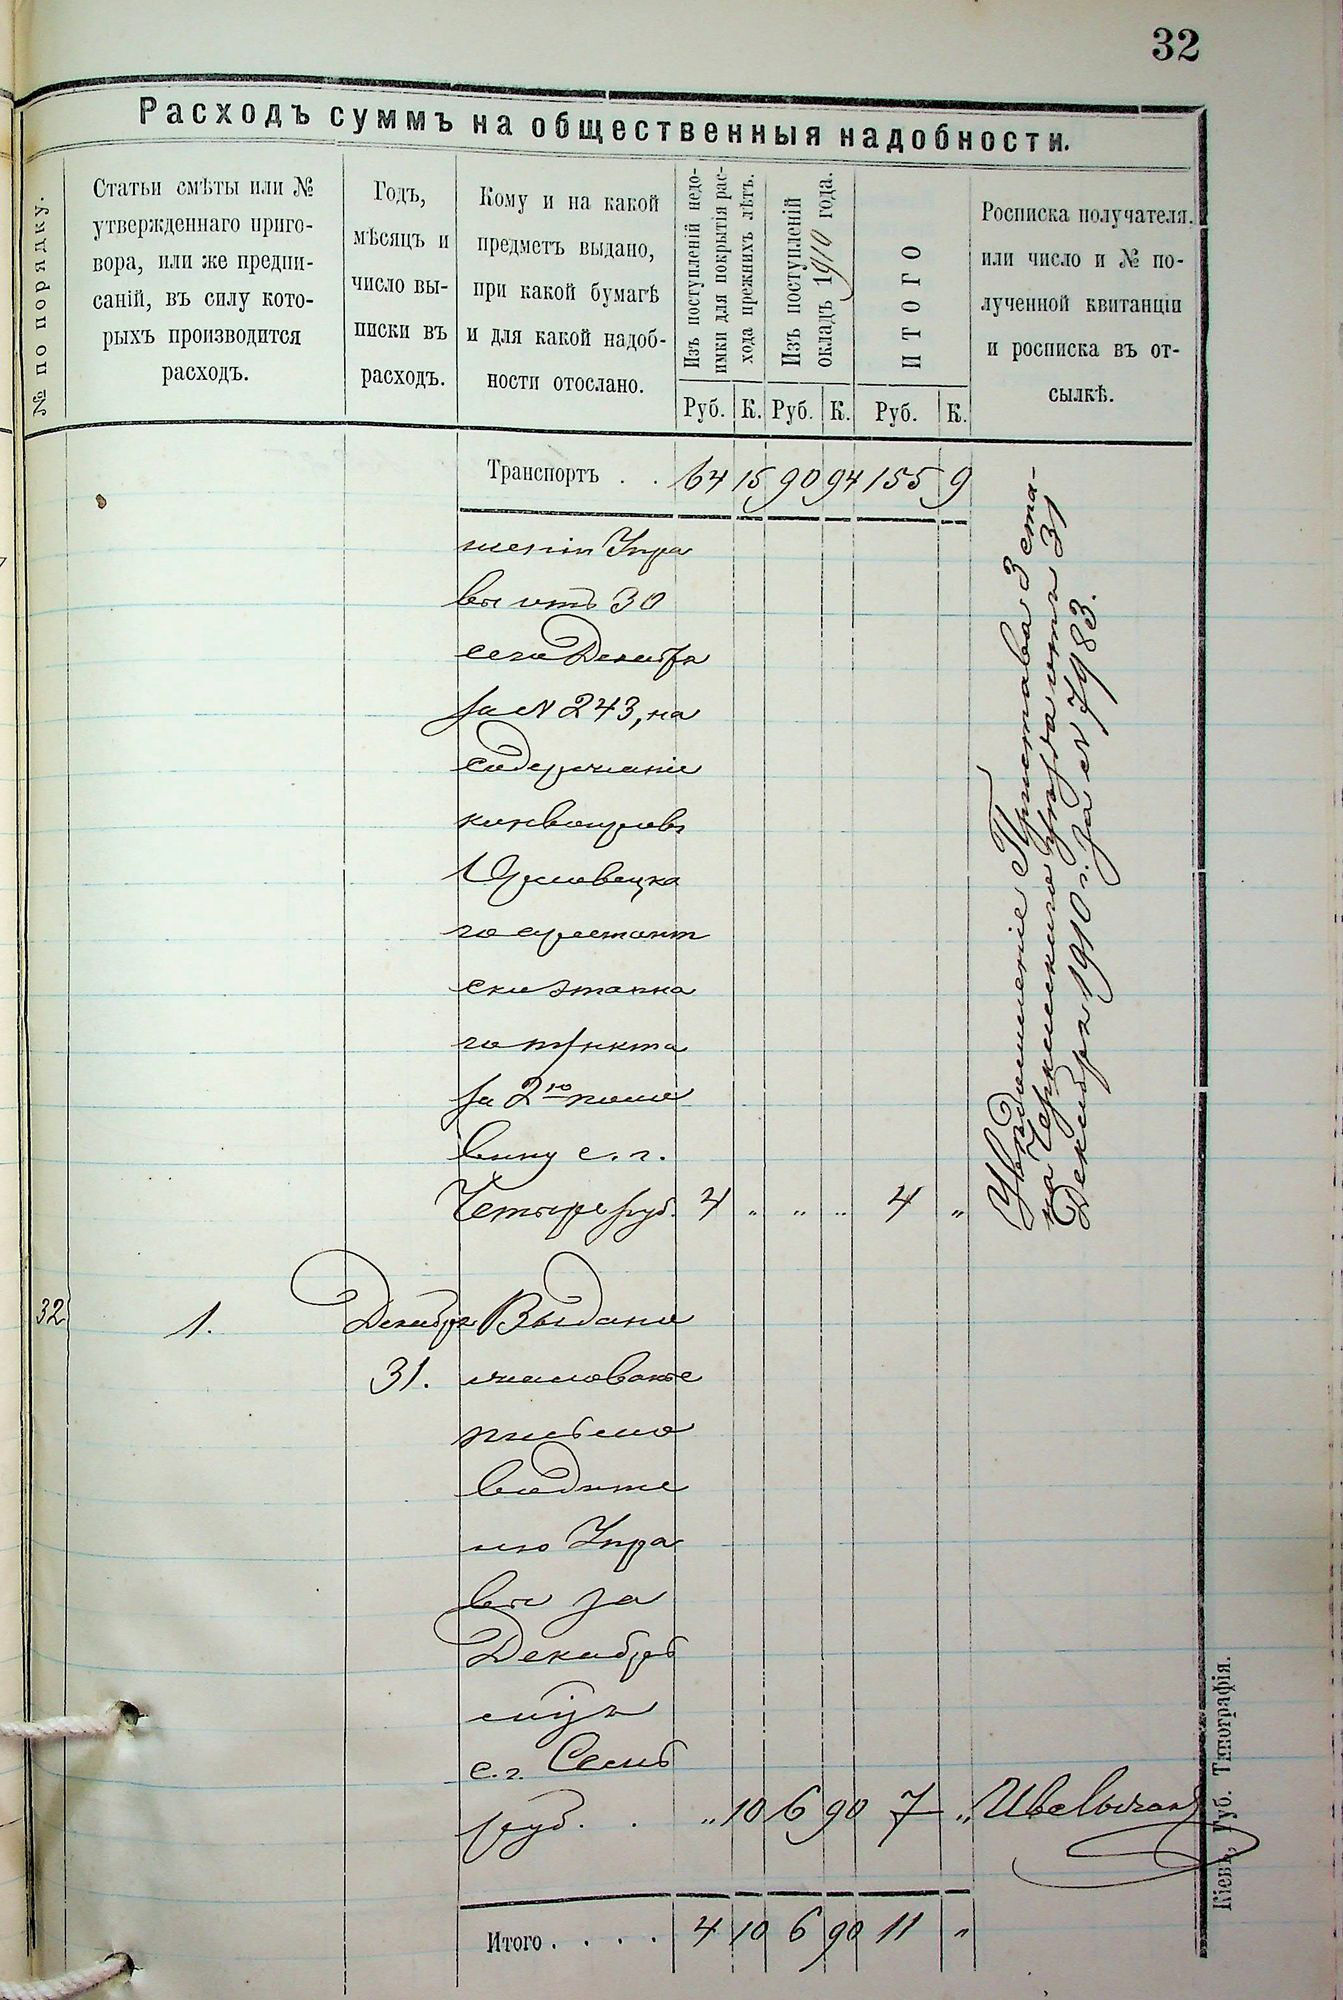 32
Расходъ суммъ на общественныя надобности.
№ по порядку.
Статьи смѣты или №
утвержденнаго приго-
вора, или же предпи-
саній, въ силу кото-
рыхъ производится
расходъ.
Годъ,
мѣсяцъ и
число вы-
писки въ
расходъ.
Кому и на какой
предметъ выдано,
при какой бумагѣ
и для какой надоб-
ности отослано.
Изъ поступленій недо-
имки для покрытія рас-
хода прежнихъ лѣтъ.
Изъ поступленій
окладъ 1910 года.
ИТОГО
Росписка получателя.
или число и № по-
лученной квитанціи
и росписка въ от-
сылкѣ.
Руб. К. Руб. К. Руб. К.
Транспортъ . . 64 15 90 94 155 9
шенiи Упра
вы отъ 30
сего Декабря
за № 243, на
содержаніе
конвоировъ
го арестант
ско этапна
го пункта
за 2ю поло
вину с. г.
Четыре руб. 4 „ „ „ 4 „
Увѣдомленіе Пристава 3 ста-
на Черкасскаго уѣзда отъ 31
Декабря 1910 г. за № 7983.
32 1. Декабря Выдано
31. жалованье
письмо
водите
лю Упра
вы за
Декабрь
мѣцъ
с. г. Семь
руб. . „ 10 6 90 7 „
Итого . . . . 4 10 6 90 11 „
Кіевъ, Губ. Типографія.